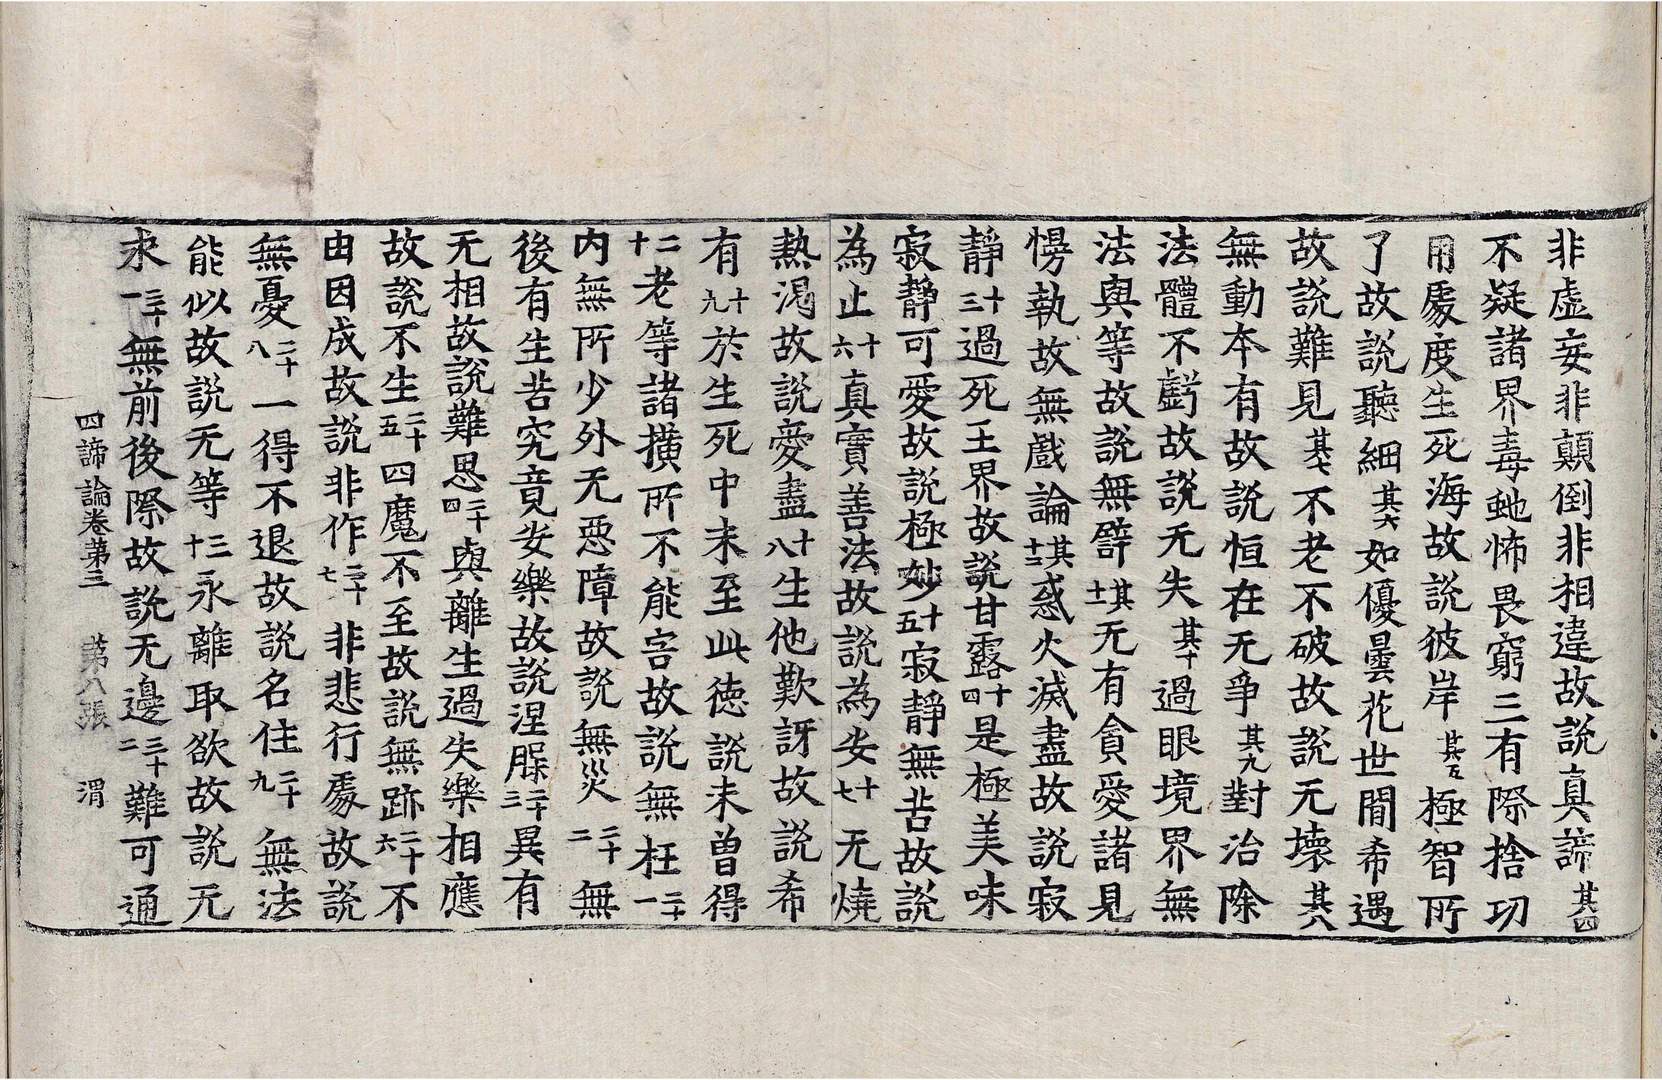 非虛妄非顛倒非相違故說真諦其四
不疑諸界毒虵怖畏窮三有際捨功
用處度生死海故說彼岸其五極智所
了故說聽細其六如優曇花世間希遇
故說難見其七不老不破故說无壞其八
無動本有故說恒在无爭其九對治除
法體不虧故說无失其十過眼境界無
法與等故說無譬其十一无有貪愛諸見
㦬執故無戲論其十二惑火滅盡故說寂
靜十三過死王界故說甘露十四是極美味
寂靜可愛故說極妙十五寂靜無苦故說
為止十六真實善法故說為安十七无燒
熱渴故說愛盡十八生他歎訝故說希
有十九於生死中未至此德說未曾得
二十老等諸擴所不能害故說無枉二十一
內無所少外无惡障故說無災二十二無
後有生苦究竟安樂故說涅脲二十三異有
无相故說難思二十四與離生過失樂相應
故說不生二十五四魔不至故說無跡二十六不
由因成故說非作二十七非悲行處故說
無憂二十八一得不退故說名住二十九無法
能似故說无等三十永離取欲故說无
求三十一無前後際故說无邊三十二難可通
四諦論卷第三　第八張　渭